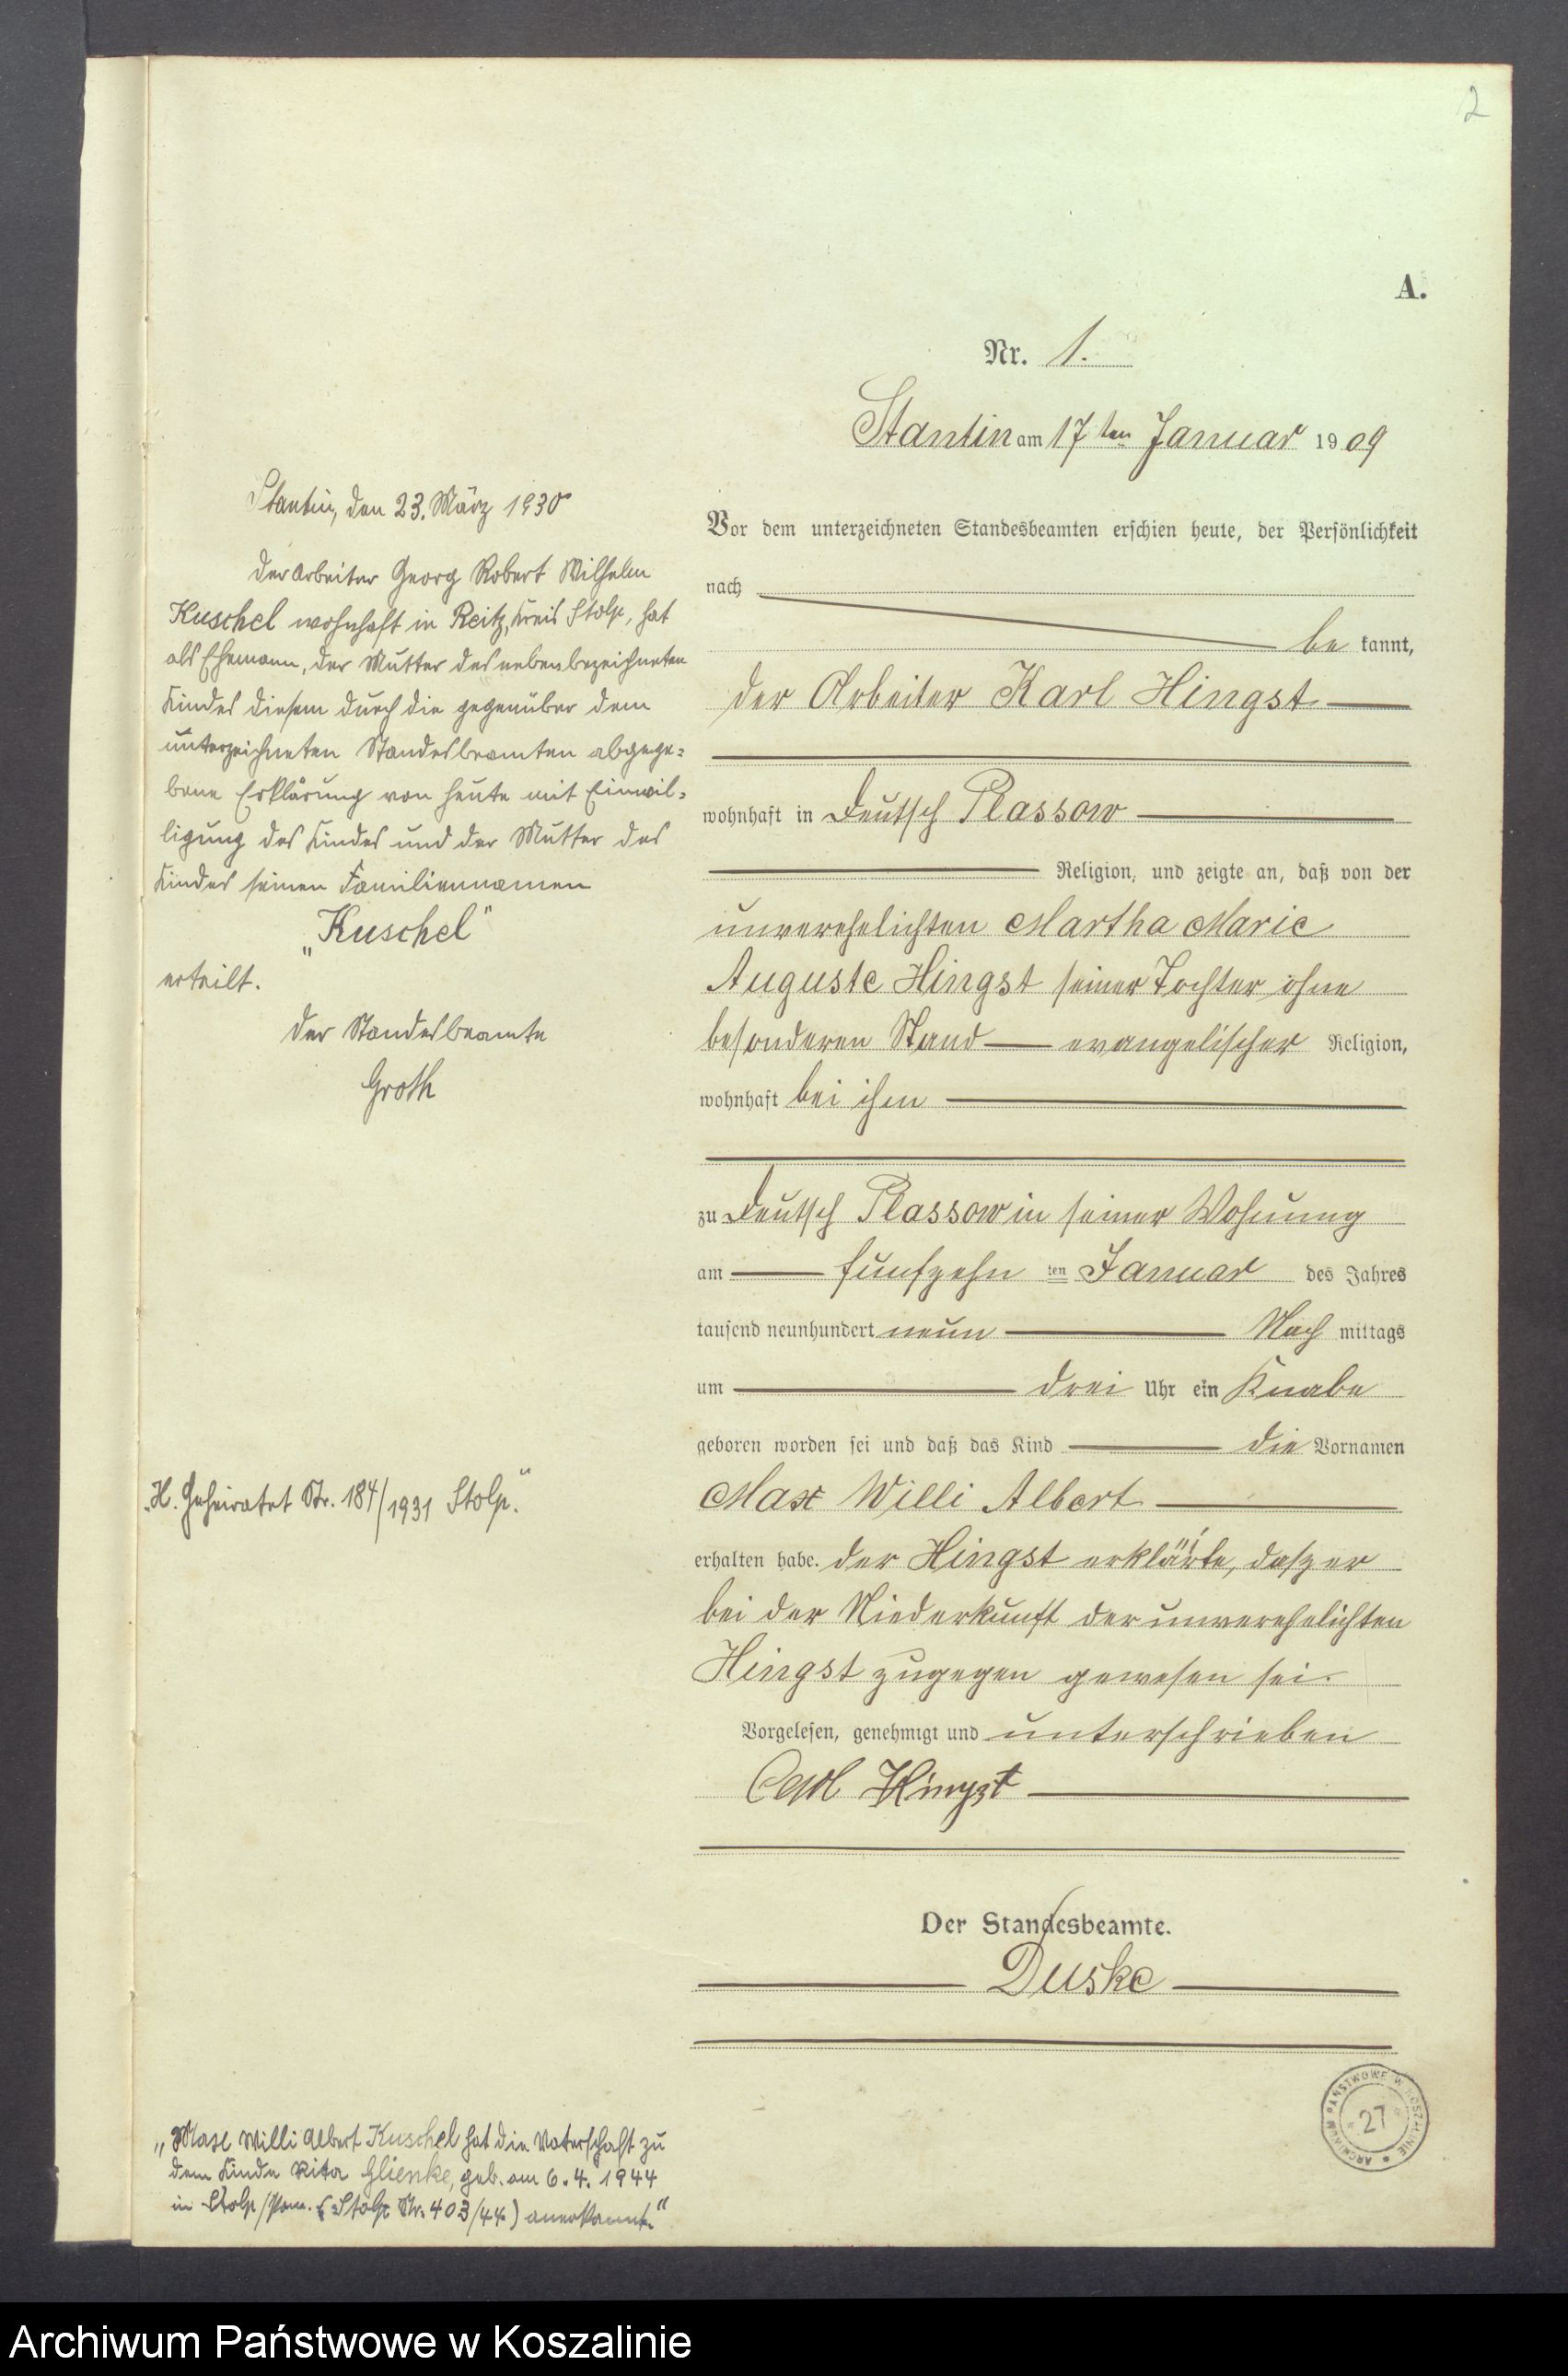 2
A.
Nr. 1.
Stantin am 17ten Januar 1909
Vor dem unterzeichneten Standesbeamten erschien heute, der Persönlichkeit
nach
be kannt,
der Arbeiter Karl Hingst
wohnhaft in Deutsch Plassow
Religion, und zeigte an, daß von der
unverehelichten Martha Marie
Auguste Hingst seiner Tochter ohne
besonderen Stand evangelischer Religion,
wohnhaft bei ihm
zu Deutsch Plassow in seiner Wohnung
am fünfzehn ten Januar des Jahres
tausend neunhundert neun Nach mittags
um drei Uhr ein Knabe
geboren worden sei und daß das Kind die Vornamen
Max Willi Albert
erhalten habe. Der Hingst erklärte, daß er
bei der Niederkunft der unverehelichten
Hingst zugegen gewesen sei.
Vorgelesen, genehmigt und unterschrieben
Carl Hingst
Der Standesbeamte.
Duske
Stantin, den 23. März 1930
Der Arbeiter Georg Robert Wilhelm
Kuschel wohnhaft in Reitz, Kreis Stolp, hat
als Ehemann, der Mutter des nebenbezeichneten
Kindes diesem durch die gegenüber dem
unterzeichneten Standesbeamten abgege=
bene Erklärung von heute mit Einwil=
ligung des Kindes und der Mutter des
Kindes seinen Familiennamen
„Kuschel"
erteilt.
Der Standesbeamte
Groth
„H. Geheiratet Nr. 184/1931 Stolp."
„Max Willi Albert Kuschel hat die Vaterschaft zu
dem Kinde Rita Glienke, geb. am 6.4.1944
in Stolp/Pom. (Stolp Nr. 403/44) anerkannt."
ARCHIWUM PAŃSTWOWE W KOSZALINIE
27
Archiwum Państwowe w Koszalinie